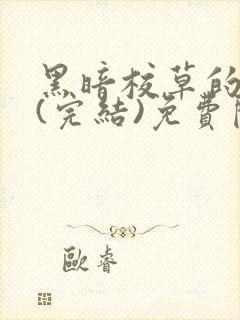 黑暗校草的
(完結)免費
歐睿